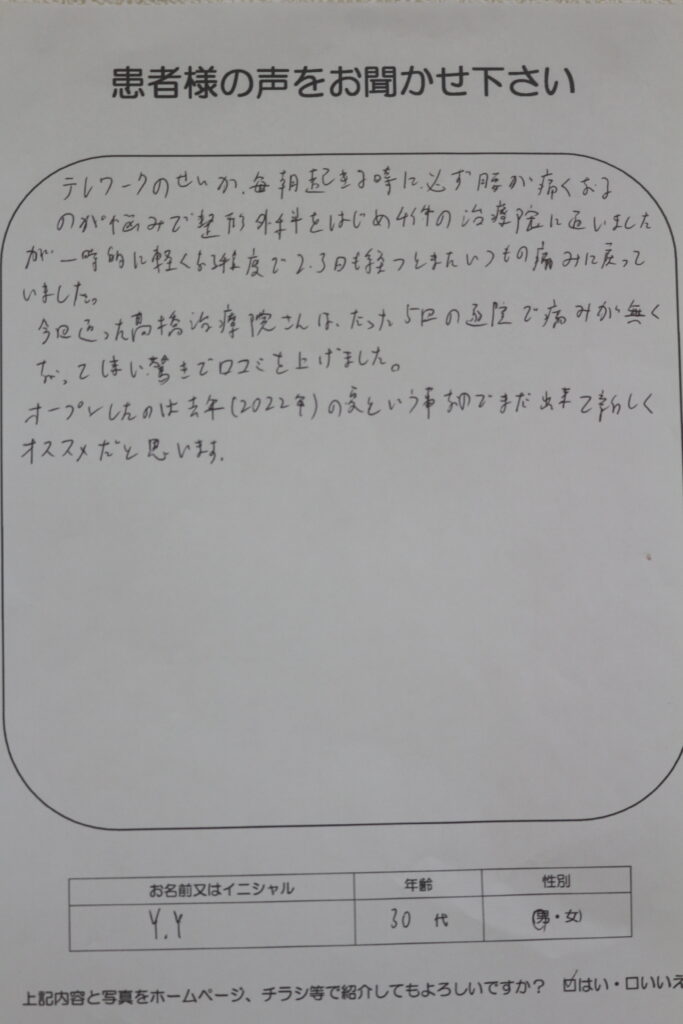 患者様の声をお聞かせ下さい
テレワークのせいか、毎朝起きる時に必ず腰が痛くなる
のが悩みで整形外科をはじめ4件の治療院に通いました
が一時的に軽くなる程度で2.3日も経つとまたいつもの痛みに戻って
いました。
今回通った髙橋治療院さんは、たった5回の通院で痛みが無く
なって 驚きで口コミを上げました。
オープンしたのは去年(2022年)の夏という事なのでまだ出来て新しく
オススメだと思います。
お名前又はイニシャル 年齢 性別
Y.Y 30 代 (男・女)
上記内容と写真をホームページ、チラシ等で紹介してもよろしいですか? ☑はい・□いいえ